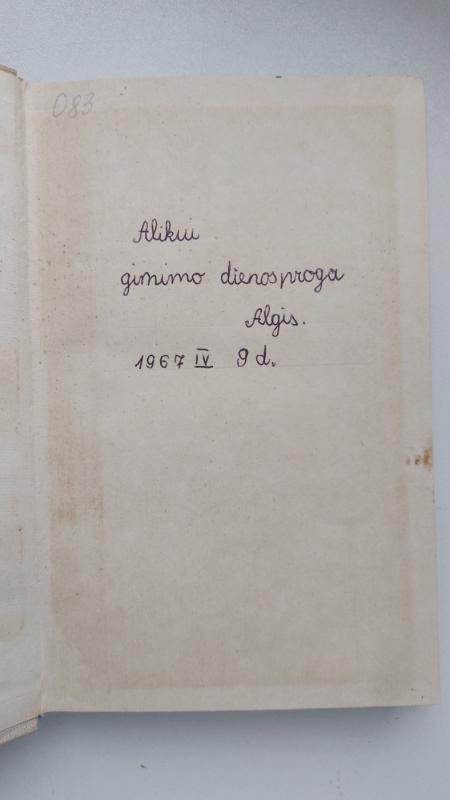 083
Alikui
gimimo dienosproga
Algis.
1967 IV 9 d.